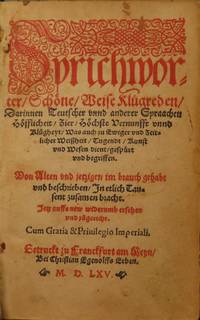 Sprichwör-
ter/ Schöne/ Weise Klůgreden/
Darinnen Teutscher vnnd anderer Spraachen
Höfflicheit/ Zier/ Höchste Vernunfft vnnd
Klůgheyt/ Was auch zu Ewiger vnd Zeit-
licher Weißheit/ Tugendt/ Kunst
vnd Wesen dient/ gespürt
vnd begriffen.
Von Alten vnd jetzigen im brauch gehabt
vnd beschrieben/ In etlich Tau-
sent zusamen bracht.
Jetz auffs new widerumb ersehen
vnd zůgericht.
Cum Gratia & Priuilegio Imperiali.
Getruckt zu Franckfurt am Meyn/
Bei Christian Egenolffs Erben.
M. D. LXV.